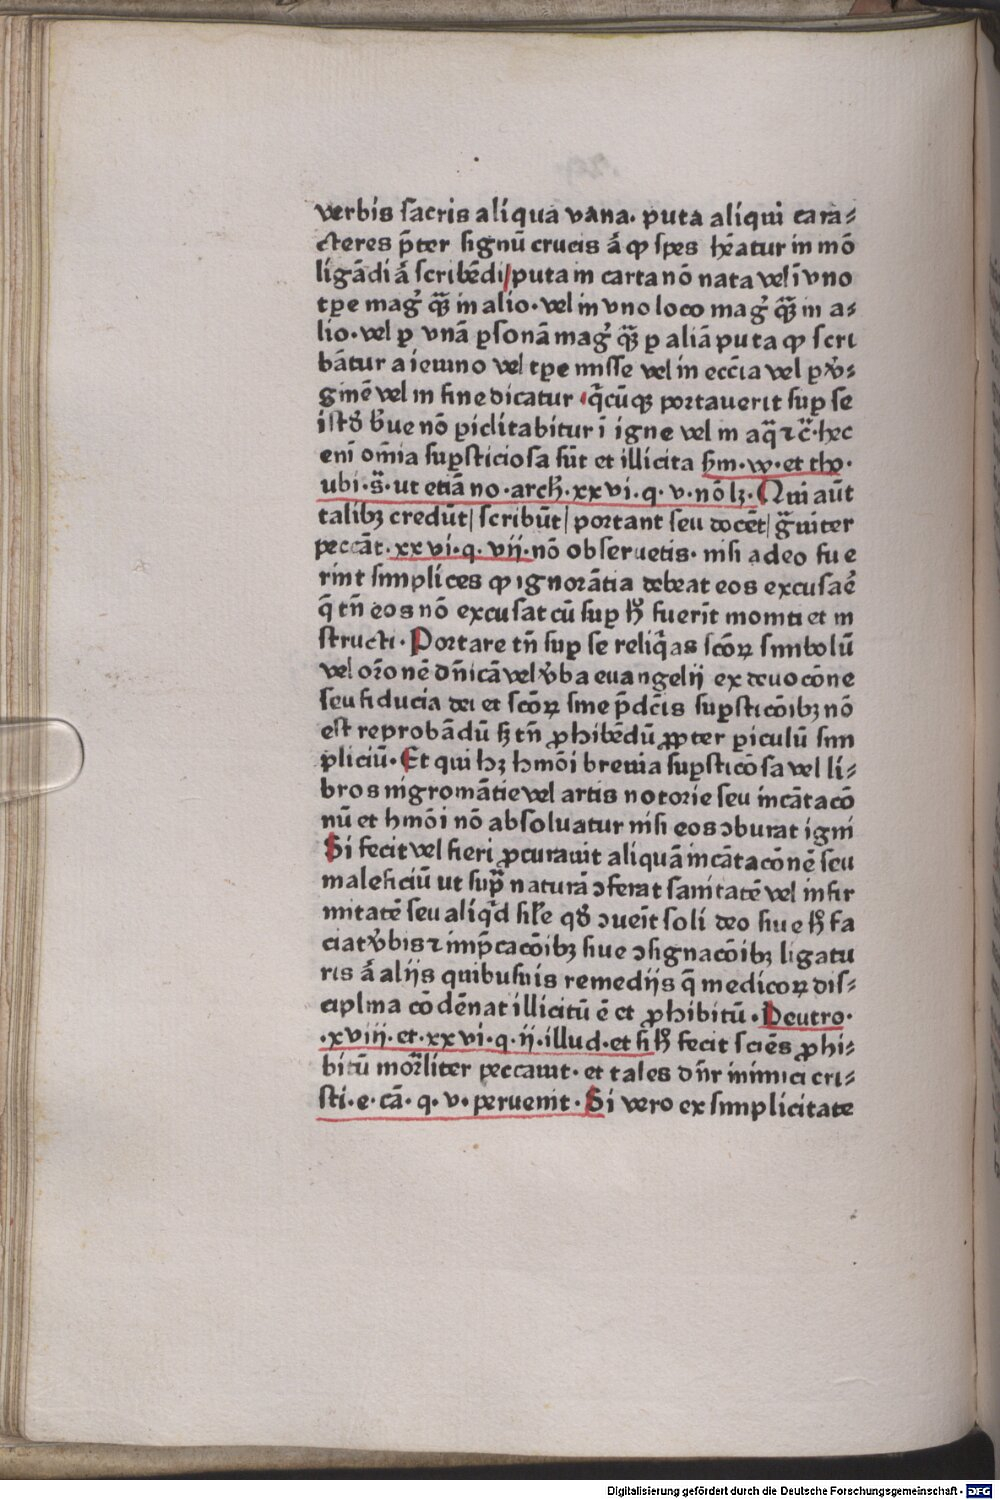 verbis sacris aliqua vana. puta aliqui cara⸗
cteres p̄ter signū crucis ā ꝙ spes h̄eatur in mō
ligādi ā scribēdi/puta in carta nō nata vel ī vno
tꝑe mag̉ qͣ̄ꝫ in alio. vel in vno loco mag̉ qͣ̄ꝫ in a⸗
lio. vel ꝑ vnā ꝑsonā mag̉ qͣ̄ꝫ ꝑ aliā puta ꝙ scri
bātur a ieiuno vel tꝑe misse vel in ecc̄ia vel ꝑ v̉⸗
ginē vel in fine dicatur q̄cūqꝫ portauerit suꝑ se
ist᷒ b̉ue nō ꝑiclitabitur ī igne vel in aqͣ̄ ⁊ c̄. hec
enī om̄ia suꝑsticiosa sūt et illicita ẜm. w. et tho.
ubi. sͣ. ut etiā no. arch. xxvi. q. v. nō lꝫ. Qui aūt
talibꝫ credūt/ scribūt/ portant seu docēt/ gͣuiter
peccāt. xxvi. q. vii. nō obseruetis. nisi adeo fue
rint simplices ꝙ ignorātia debeat eos excusaē
q̄ tn̄ eos nō excusat cū suꝑ hͦ fuerīt moniti et in
structi. Portare tn̄ suꝑ se reliq̄as scōꝝ simbolū
vel or̄onē dn̄icā vel v̉ba euangelij ex deuocōne
seu fiducia dei et scōꝝ sine p̄dc̄is suꝑsticōibꝫ nō
est reprobādū sꝫ tn̄ ꝓhibēdū ꝓpter ꝑiculū sim
pliciū. Et qui hꝫ hmōi breuia suꝑsticōsa vel li⸗
bros nigromātie vel artis notorie seu incātacō
nū et hmōi nō absoluatur nisi eos ↄburat igni
Si fecit vel fieri ꝓcurauit aliquā incātacōnē seu
maleficiū ut supͣ naturā ↄferat sanitatē vel infir
mitatē seu aliq̄d sil̄e qd̉ ↄueīt soli deo siue hͦ fa
ciat v̉bis ⁊ imp̄cacōibꝫ siue ↄsignacōibꝫ ligatu
ris ā alijs quibusuis remedijs q̄ medicoꝝ dis⸗
ciplina cōdēnat illicitū ē et ꝓhibitū. Deutro.
.xviij. et. xxvi. q. ij. illud. et si hͦ fecit sciēs ꝓhi⸗
bitū mor̄liter peccauit. et tales dn̄r inimici cri⸗
sti. e. cā. q. v. peruenit. Si vero ex simplicitate
Digitalisierung gefördert durch die Deutsche Forschungsgemeinschaft - DFG